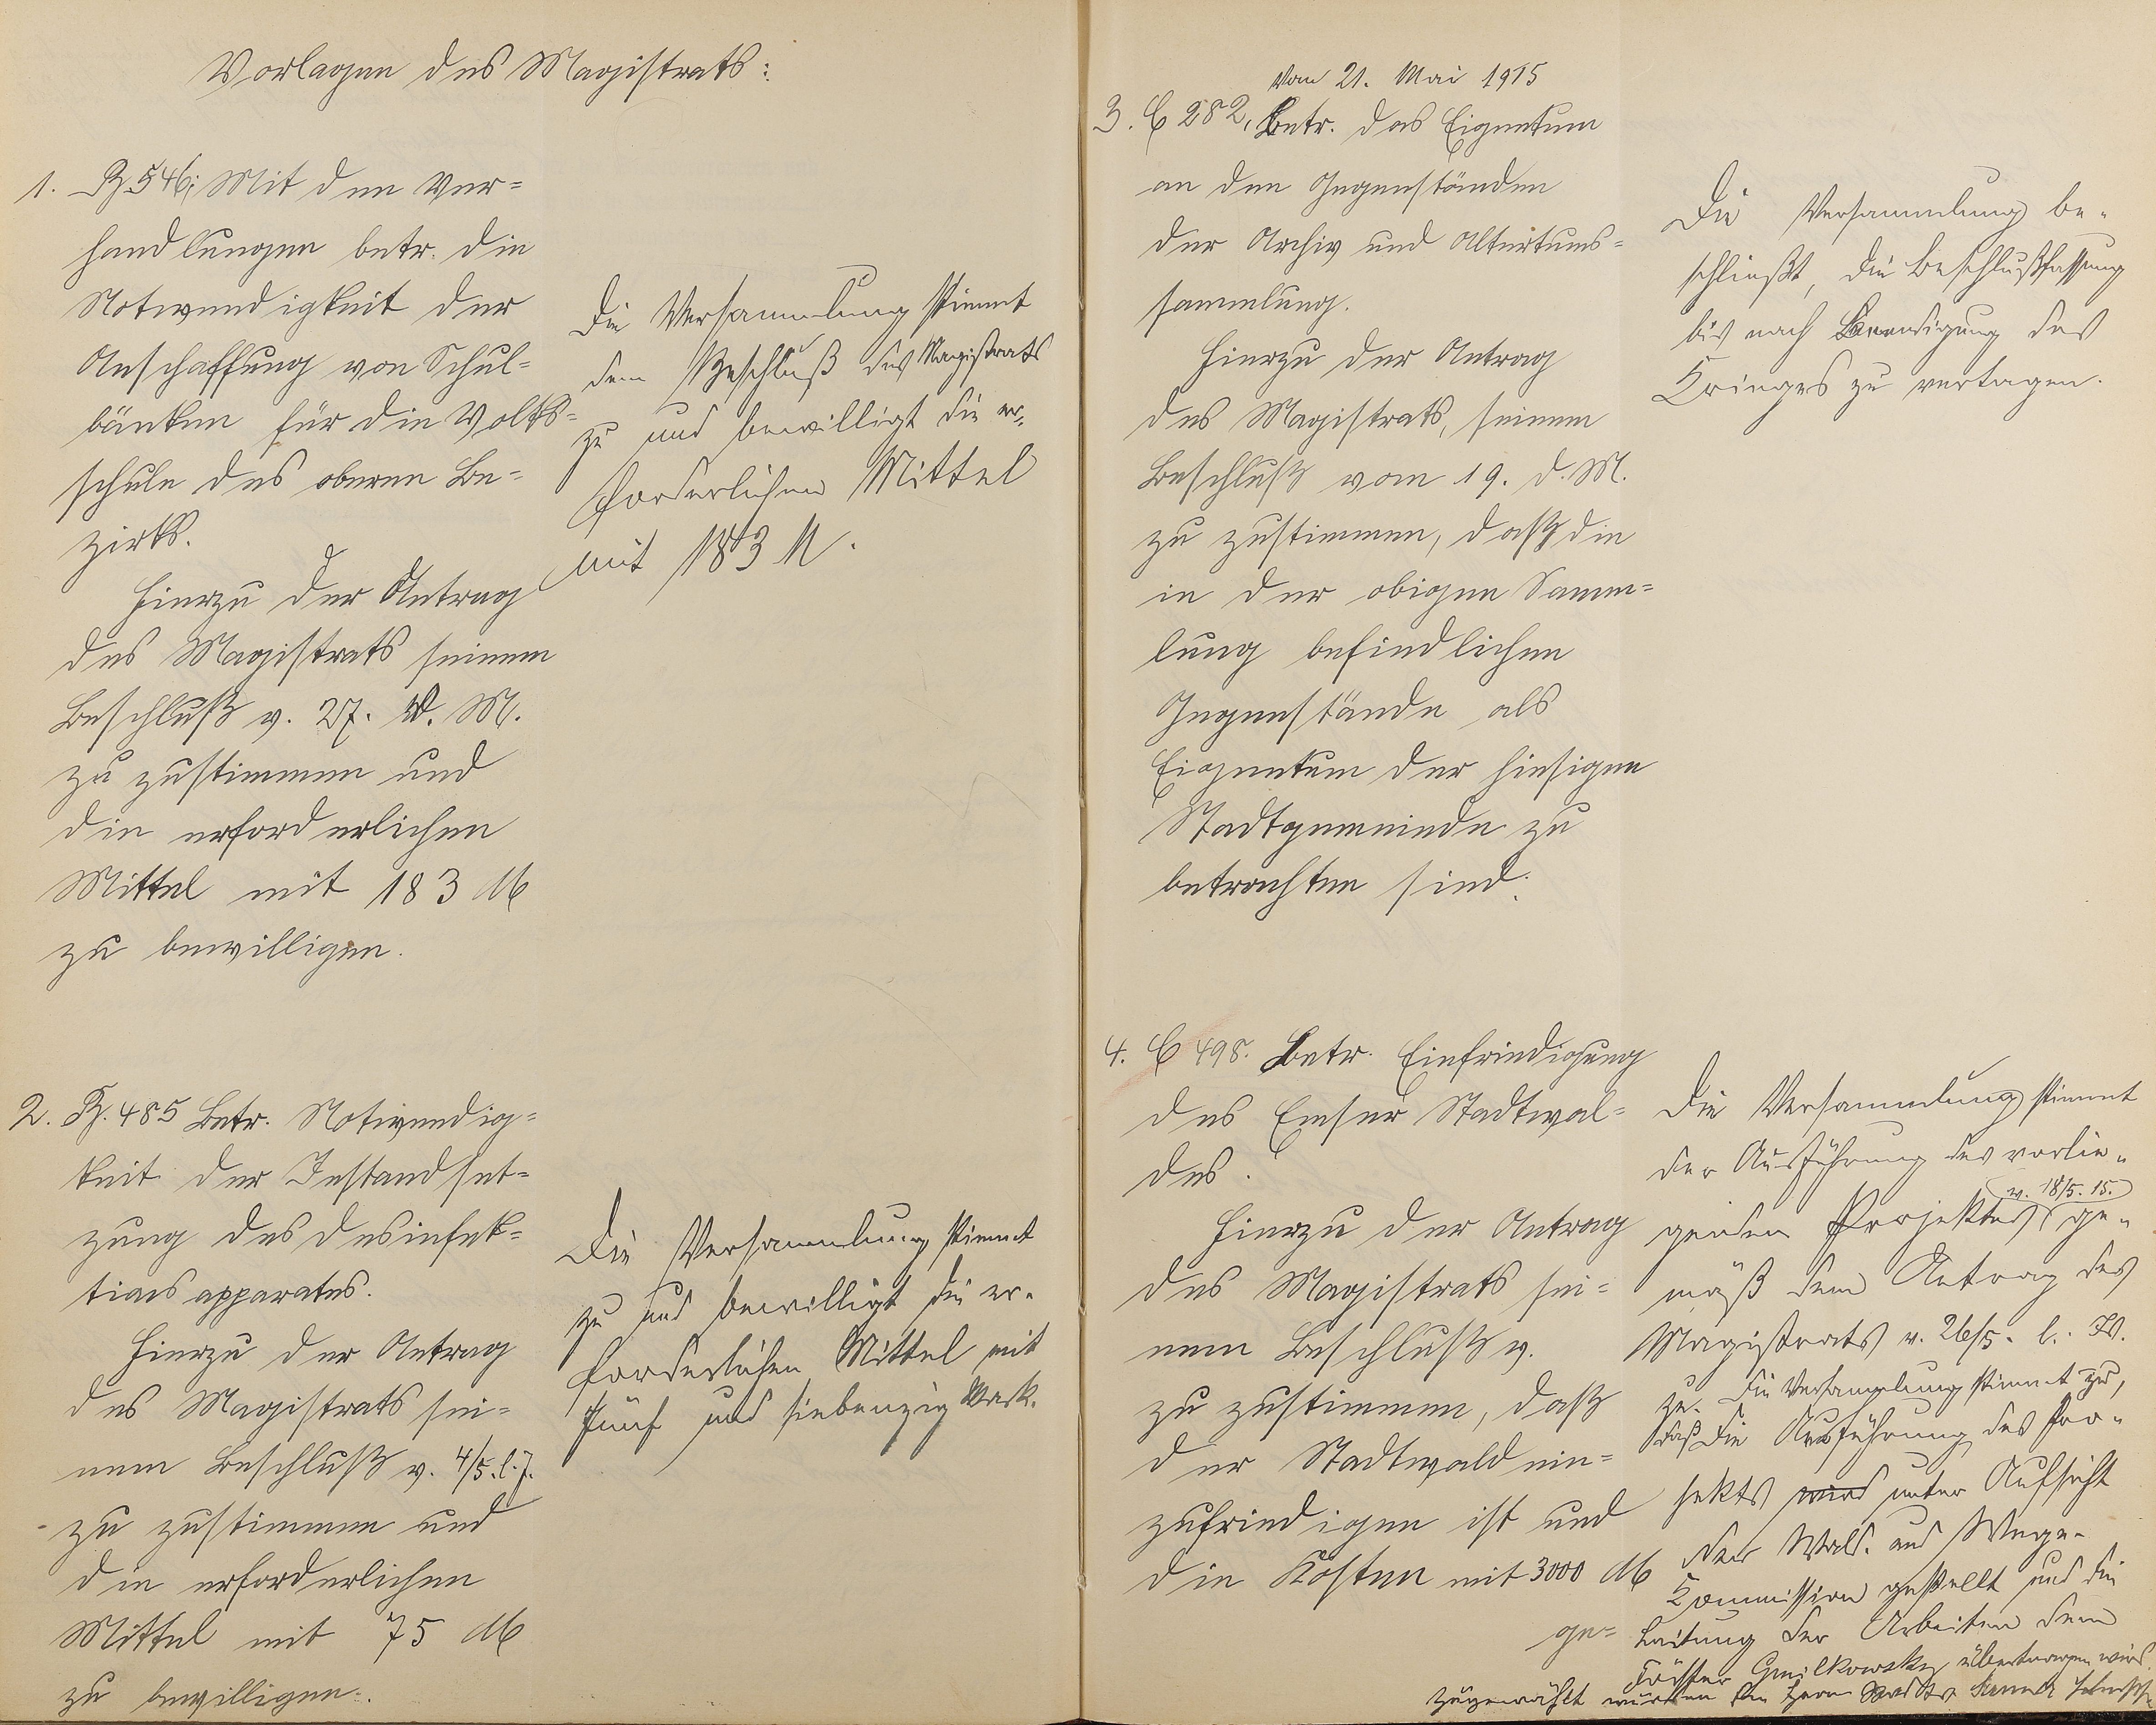 Vorlagen des Magistrats:
1. B 546; Mit den Ver=
handlungen betr. die
Notwendigkeit der
Anschaffung von Schul-
bänken für die Volks=
schule des oberen Be=
zirks.
Hierzu der Antrag
des Magistrats seinem
Beschluß v. 27. d. M.
zu zustimmen und
die erforderlichen
Mittel mit 183 M
zu bewilligen.
Die Versammlung stimmt
dem Beschluß des Magistrats
zu und bewilligt die er-
forderlichen Mittel
mit 183 M.
2. B. 485 Betr. Notwendig=
keit der Instandset=
zung des Desinfek=
tionsapparates.
Hierzu der Antrag
des Magistrats sei=
nem Beschluß v. 4/5. l. J.
zu zustimmen und
die erforderlichen
Mittel mit 75 M
zu bewilligen.
Die Versammlung stimmt
zu und bewilligt die er-
forderlichen Mittel mit
fünf und siebenzig Mark.
vom 21. Mai 1915
3. C 282, Betr. das Eigentum
an den Gegenständen
der Archiv und Altertums=
sammlung.
Hierzu der Antrag
des Magistrats, seinem
Beschluß vom 19. d. M.
zu zustimmen, daß die
in der obigen Samm=
lung befindlichen
Gegenstände als
Eigentum der hiesigen
Stadtgemeinde zu
betrachten sind.
Die Versammlung be-
schließt, die Beschlußfassung
bis nach Beendigung des
Krieges zu vertagen.
4. C 498. Betr. Einfriedigung
des Emser Stadtwal=
des.
Hierzu der Antrag
des Magistrats sei=
nem Beschluß v.
zu zustimmen, daß
der Stadtwald ein=
zufriedigen ist und
die Kosten mit 3000 M
ge=
Die Versammlung stimmt
der Ausführung des vorlie-
v. 18/5. 15.
genden Projektes ge-
mäß dem Antrag des
Magistrats v. 26/5. l. Js.
zu. Die Versammlung stimmt zu,
daß die Ausführung des Pro-
jekts wird unter Aufsicht
der Wald- und Wege-
Kommission gestellt und die
Leitung der Arbeiten dem
Förster übertragen wird
Zugewählt wurden die Herrn